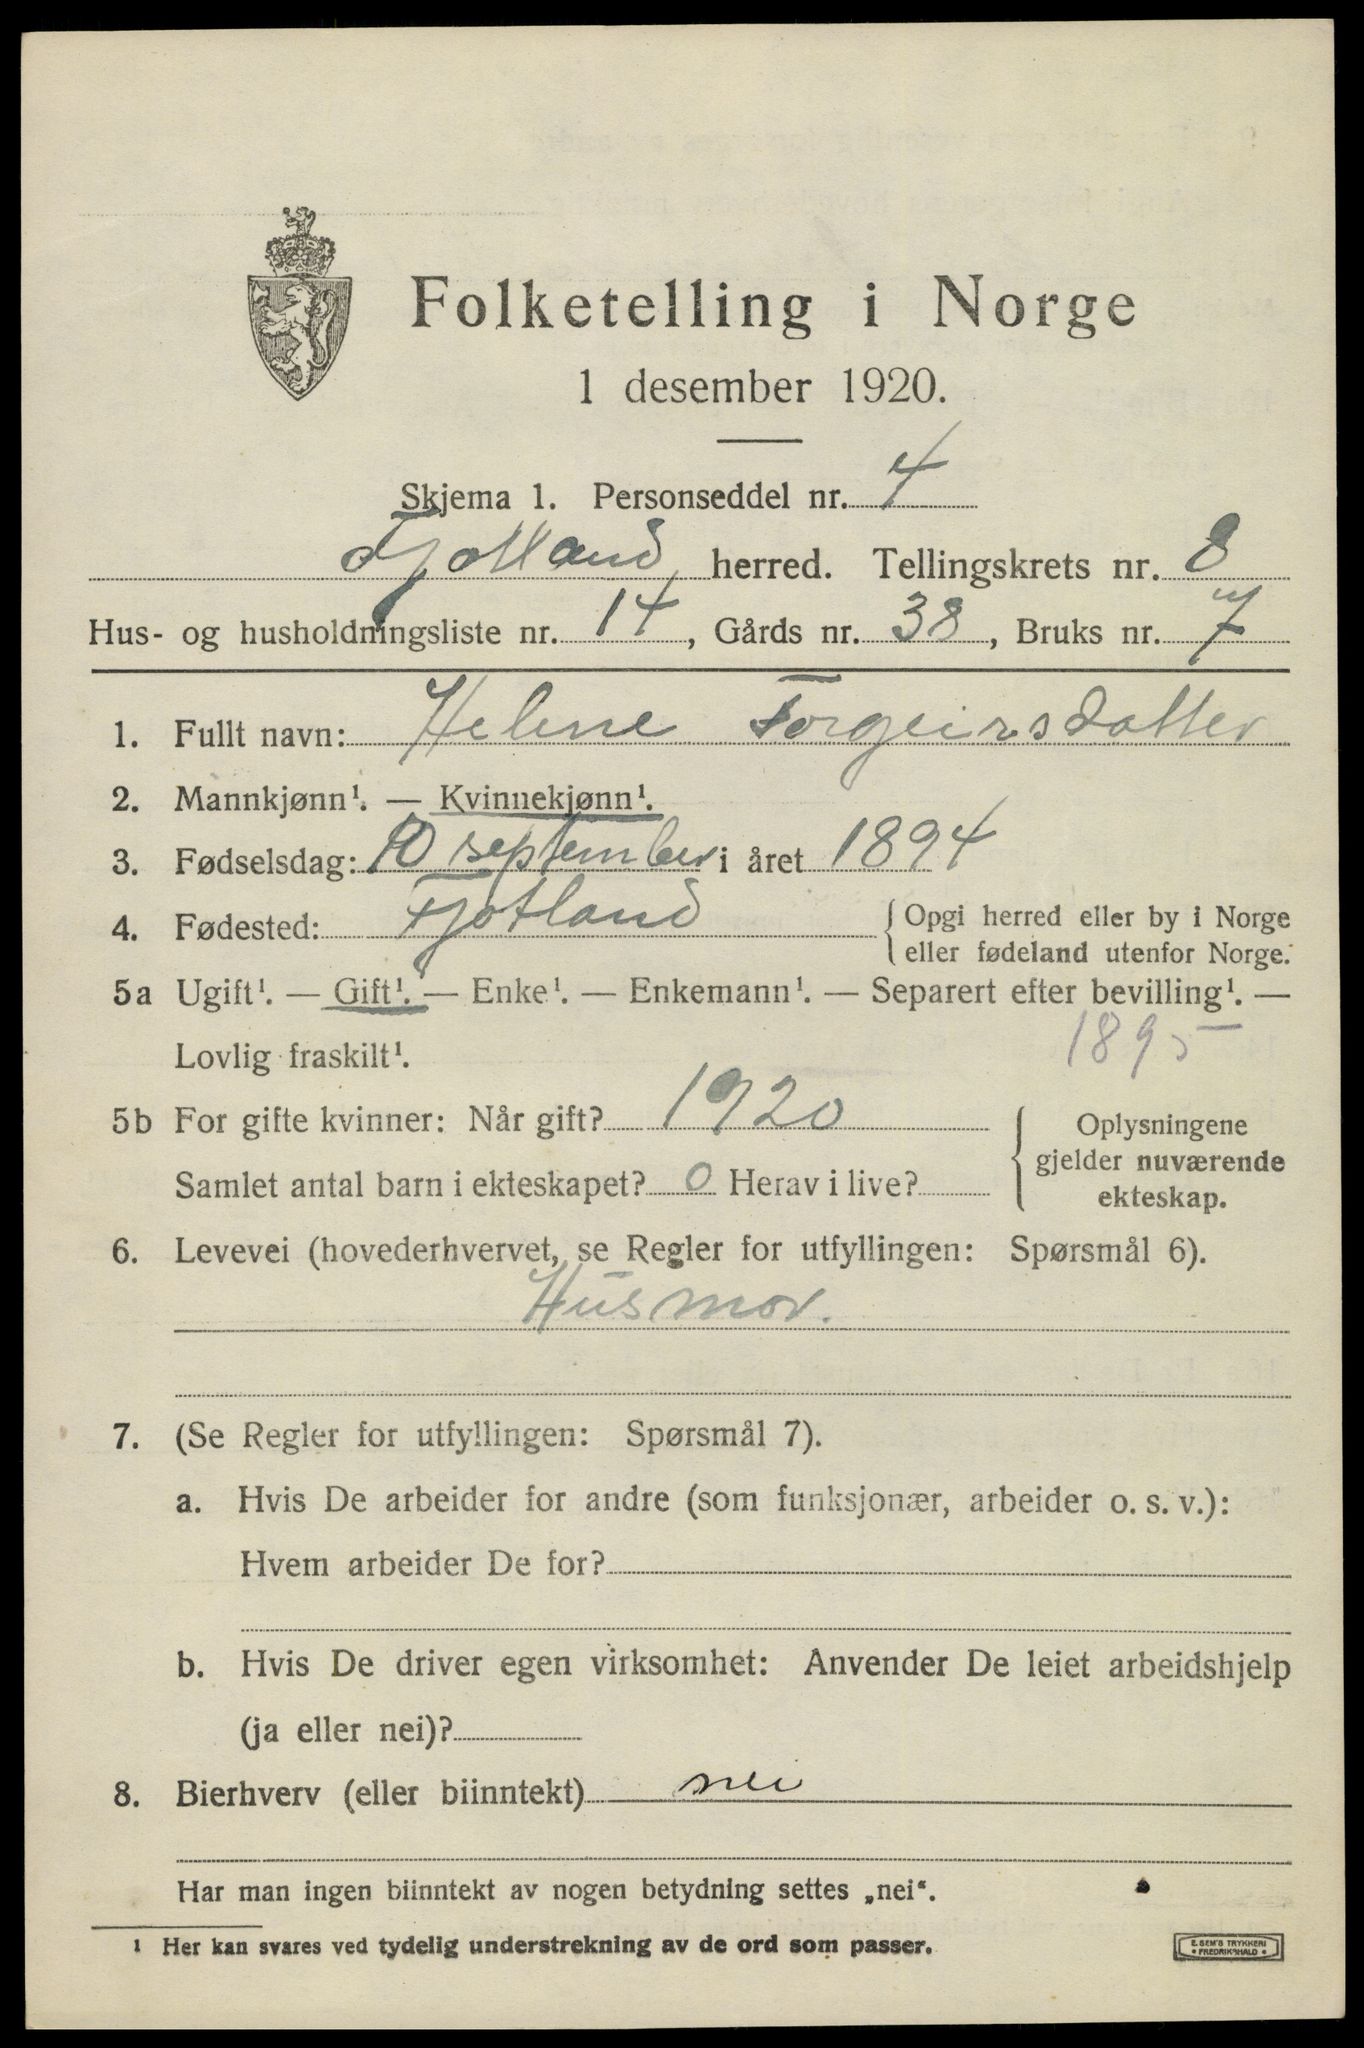 Folketelling i Norge
1 desember 1920.
Skjema 1. Personseddel nr. 4
Fjotland herred. Tellingskrets nr. 8
Hus- og husholdningsliste nr. 14, Gårds nr. 38, Bruks nr. 7
1. Fullt navn: Helene Torgeirsdatter
2. Mannkjønn¹. — Kvinnekjønn¹.
3. Fødselsdag: 10 september i året 1894
4. Fødested: Fjotland { Opgi herred eller by i Norge
eller fødeland utenfor Norge.
5a Ugift¹. — Gift¹. — Enke¹. — Enkemann¹. — Separert efter bevilling¹. —
Lovlig fraskilt¹. 1895
5b For gifte kvinner: Når gift? 1920
Samlet antal barn i ekteskapet? 0 Herav i live?
{ Oplysningene
gjelder nuværende
ekteskap.
6. Levevei (hovederhvervet, se Regler for utfyllingen: Spørsmål 6).
Husmor.
7. (Se Regler for utfyllingen: Spørsmål 7).
a. Hvis De arbeider for andre (som funksjonær, arbeider o. s. v.):
Hvem arbeider De for?
b. Hvis De driver egen virksomhet: Anvender De leiet arbeidshjelp
(ja eller nei)?
8. Bierhverv (eller biinntekt) nei
Har man ingen biinntekt av nogen betydning settes „nei“.
¹ Her kan svares ved tydelig understrekning av de ord som passer.
E. SEM'S TRYKKERI
• FREDRIKSHALD •